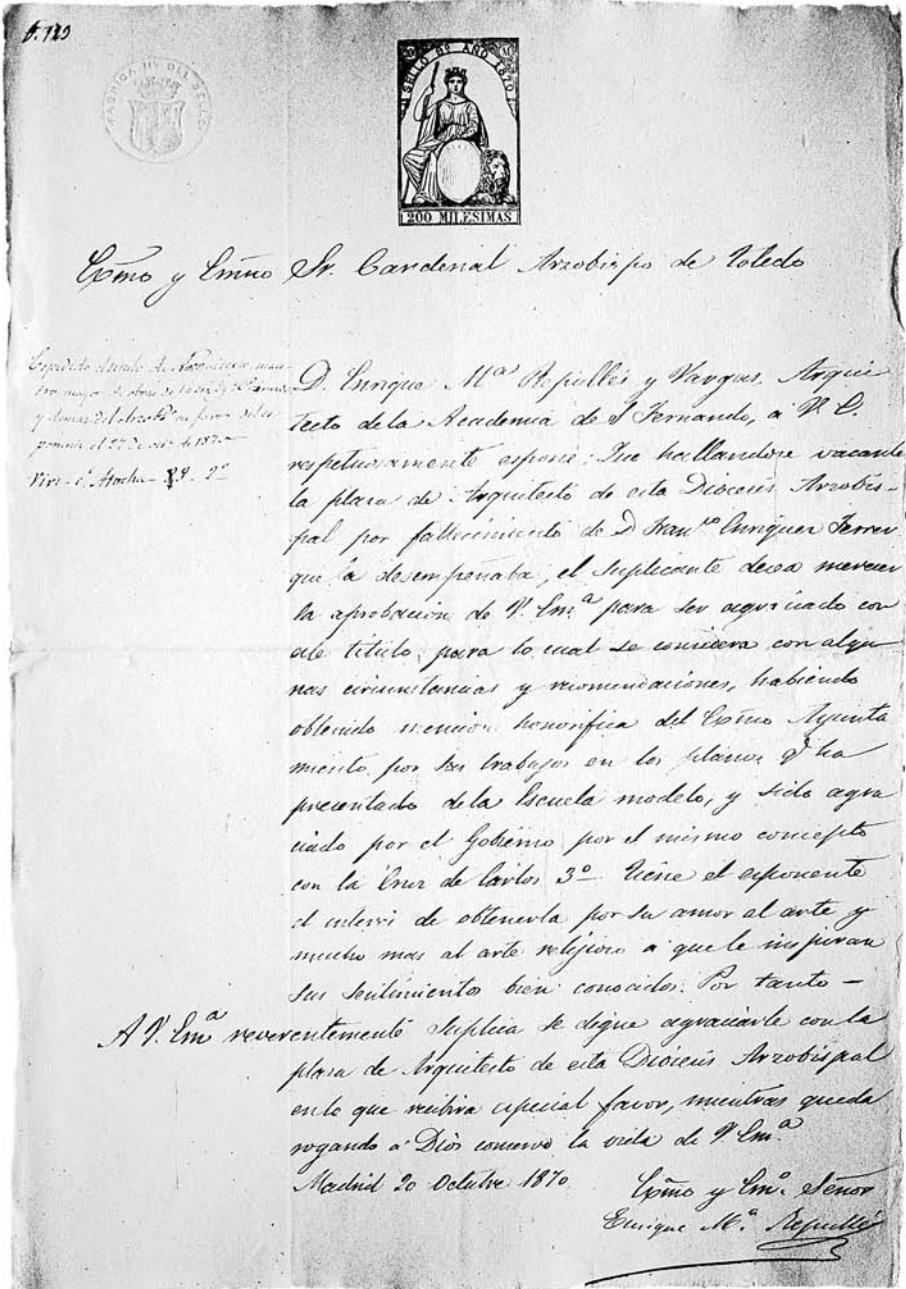 F. 123
FABRICA N. DEL SELLO
SELLO 9º AÑO 1870
200 MILESIMAS
Exmo y Emmo Sr. Cardenal Arzobispo de Toledo
Expedido el título de Arquitecto maes
tro mayor de obras de la
y demas del Arzobdo en favor del es
ponente el 27 de de 1870
Vive c. Atocha - 2º
D. Enrique Mª Repullés y Vargas, Arqui
tecto dela Academia de S Fernando, a V. E.
respetuosamente espone: Que hallandose vacante
la plaza de Arquitecto de esta Diócesis Arzobis-
pal por fallecimiento de D Franco Enriquez Ferrer
que la desempeñaba, el suplicante desea merecer
la aprobacion de V. Emª para ser agraciado con
ese título, para lo cual se considera con algu
nas circunstancias y recomendaciones, habiendo
obtenido mencion honorifica del Exmo Ayunta
miento por sus trabajos en los planos q ha
presentado dela Escuela modelo, y sido agra
ciado por el Gobierno por el mismo concepto
con la Cruz de Carlos 3º Tiene el esponente
el interés de obtenerla por su amor al arte y
mucho mas al arte religioso a que le inspiran
sus sentimientos bien conocidos. Por tanto -
A V. Emª reverentemente suplica se digne agraciarle con la
plaza de Arquitecto de esta Diócesis Arzobispal
en lo que recibira especial favor, mientras queda
rogando a Dios conserve la vida de V Emª
Madrid 20 Octubre 1870
Exmo y Emº. Señor
Enrique M.ª Repullés